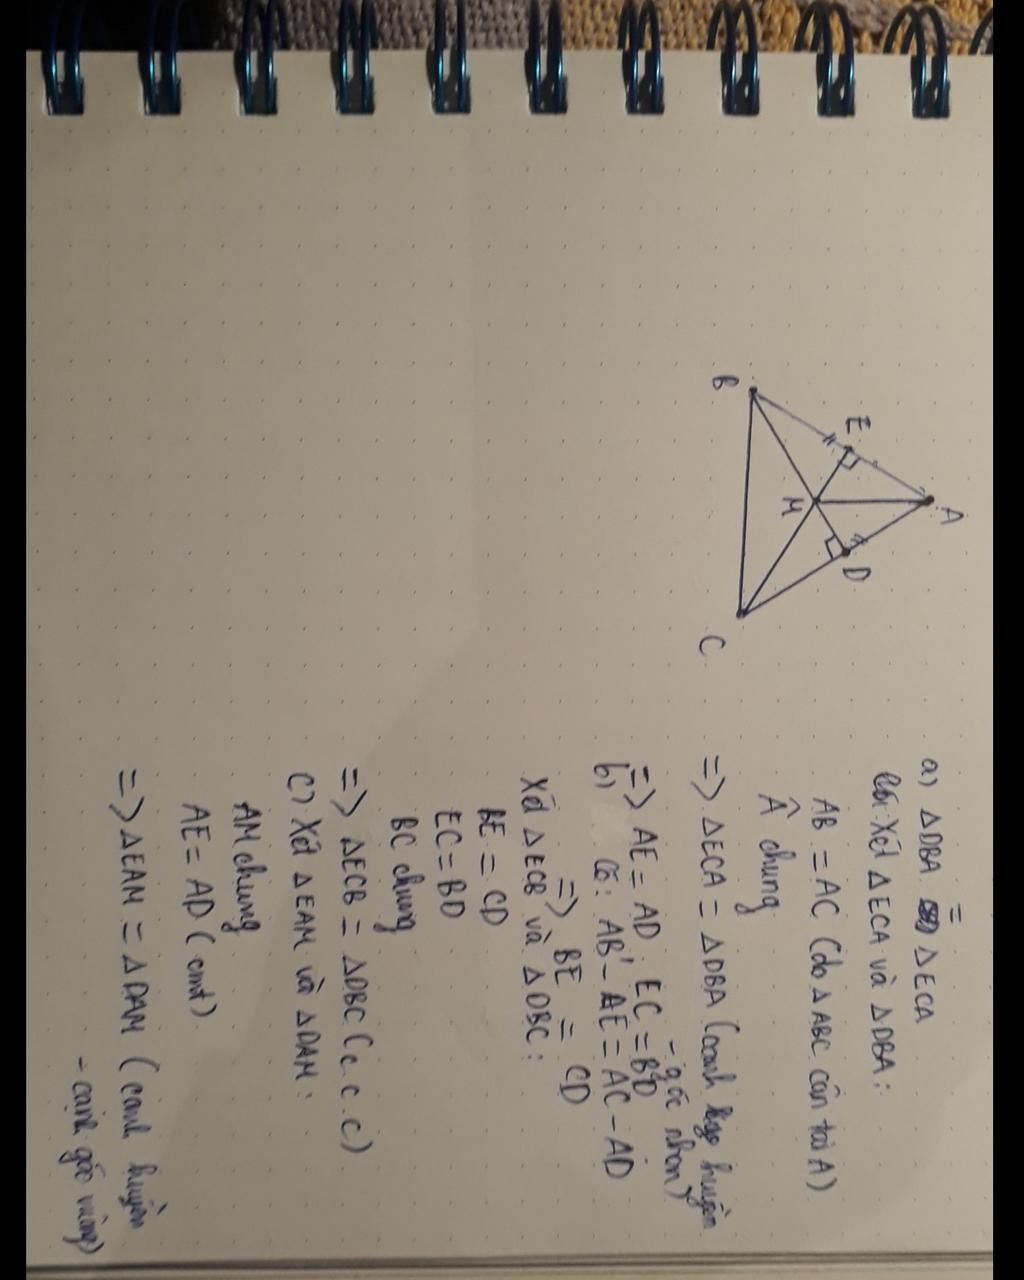 A
E
D
M
B
C
a) ΔDBA = ΔECA
Xét ΔECA và ΔDBA:
AB = AC (do ΔABC cân tại A)
Â chung
=> ΔECA = ΔDBA (cạnh huyền
- góc nhọn)
=> AE = AD ; EC = BD
b) Có: AB - AE = AC - AD
=> BE = CD
Xét ΔECB và ΔDBC:
BE = CD
EC = BD
BC chung
=> ΔECB = ΔDBC (c.c.c)
c) Xét ΔEAM và ΔDAM:
AM chung
AE = AD (cmt)
=> ΔEAM = ΔDAM (cạnh huyền
- cạnh góc vuông)